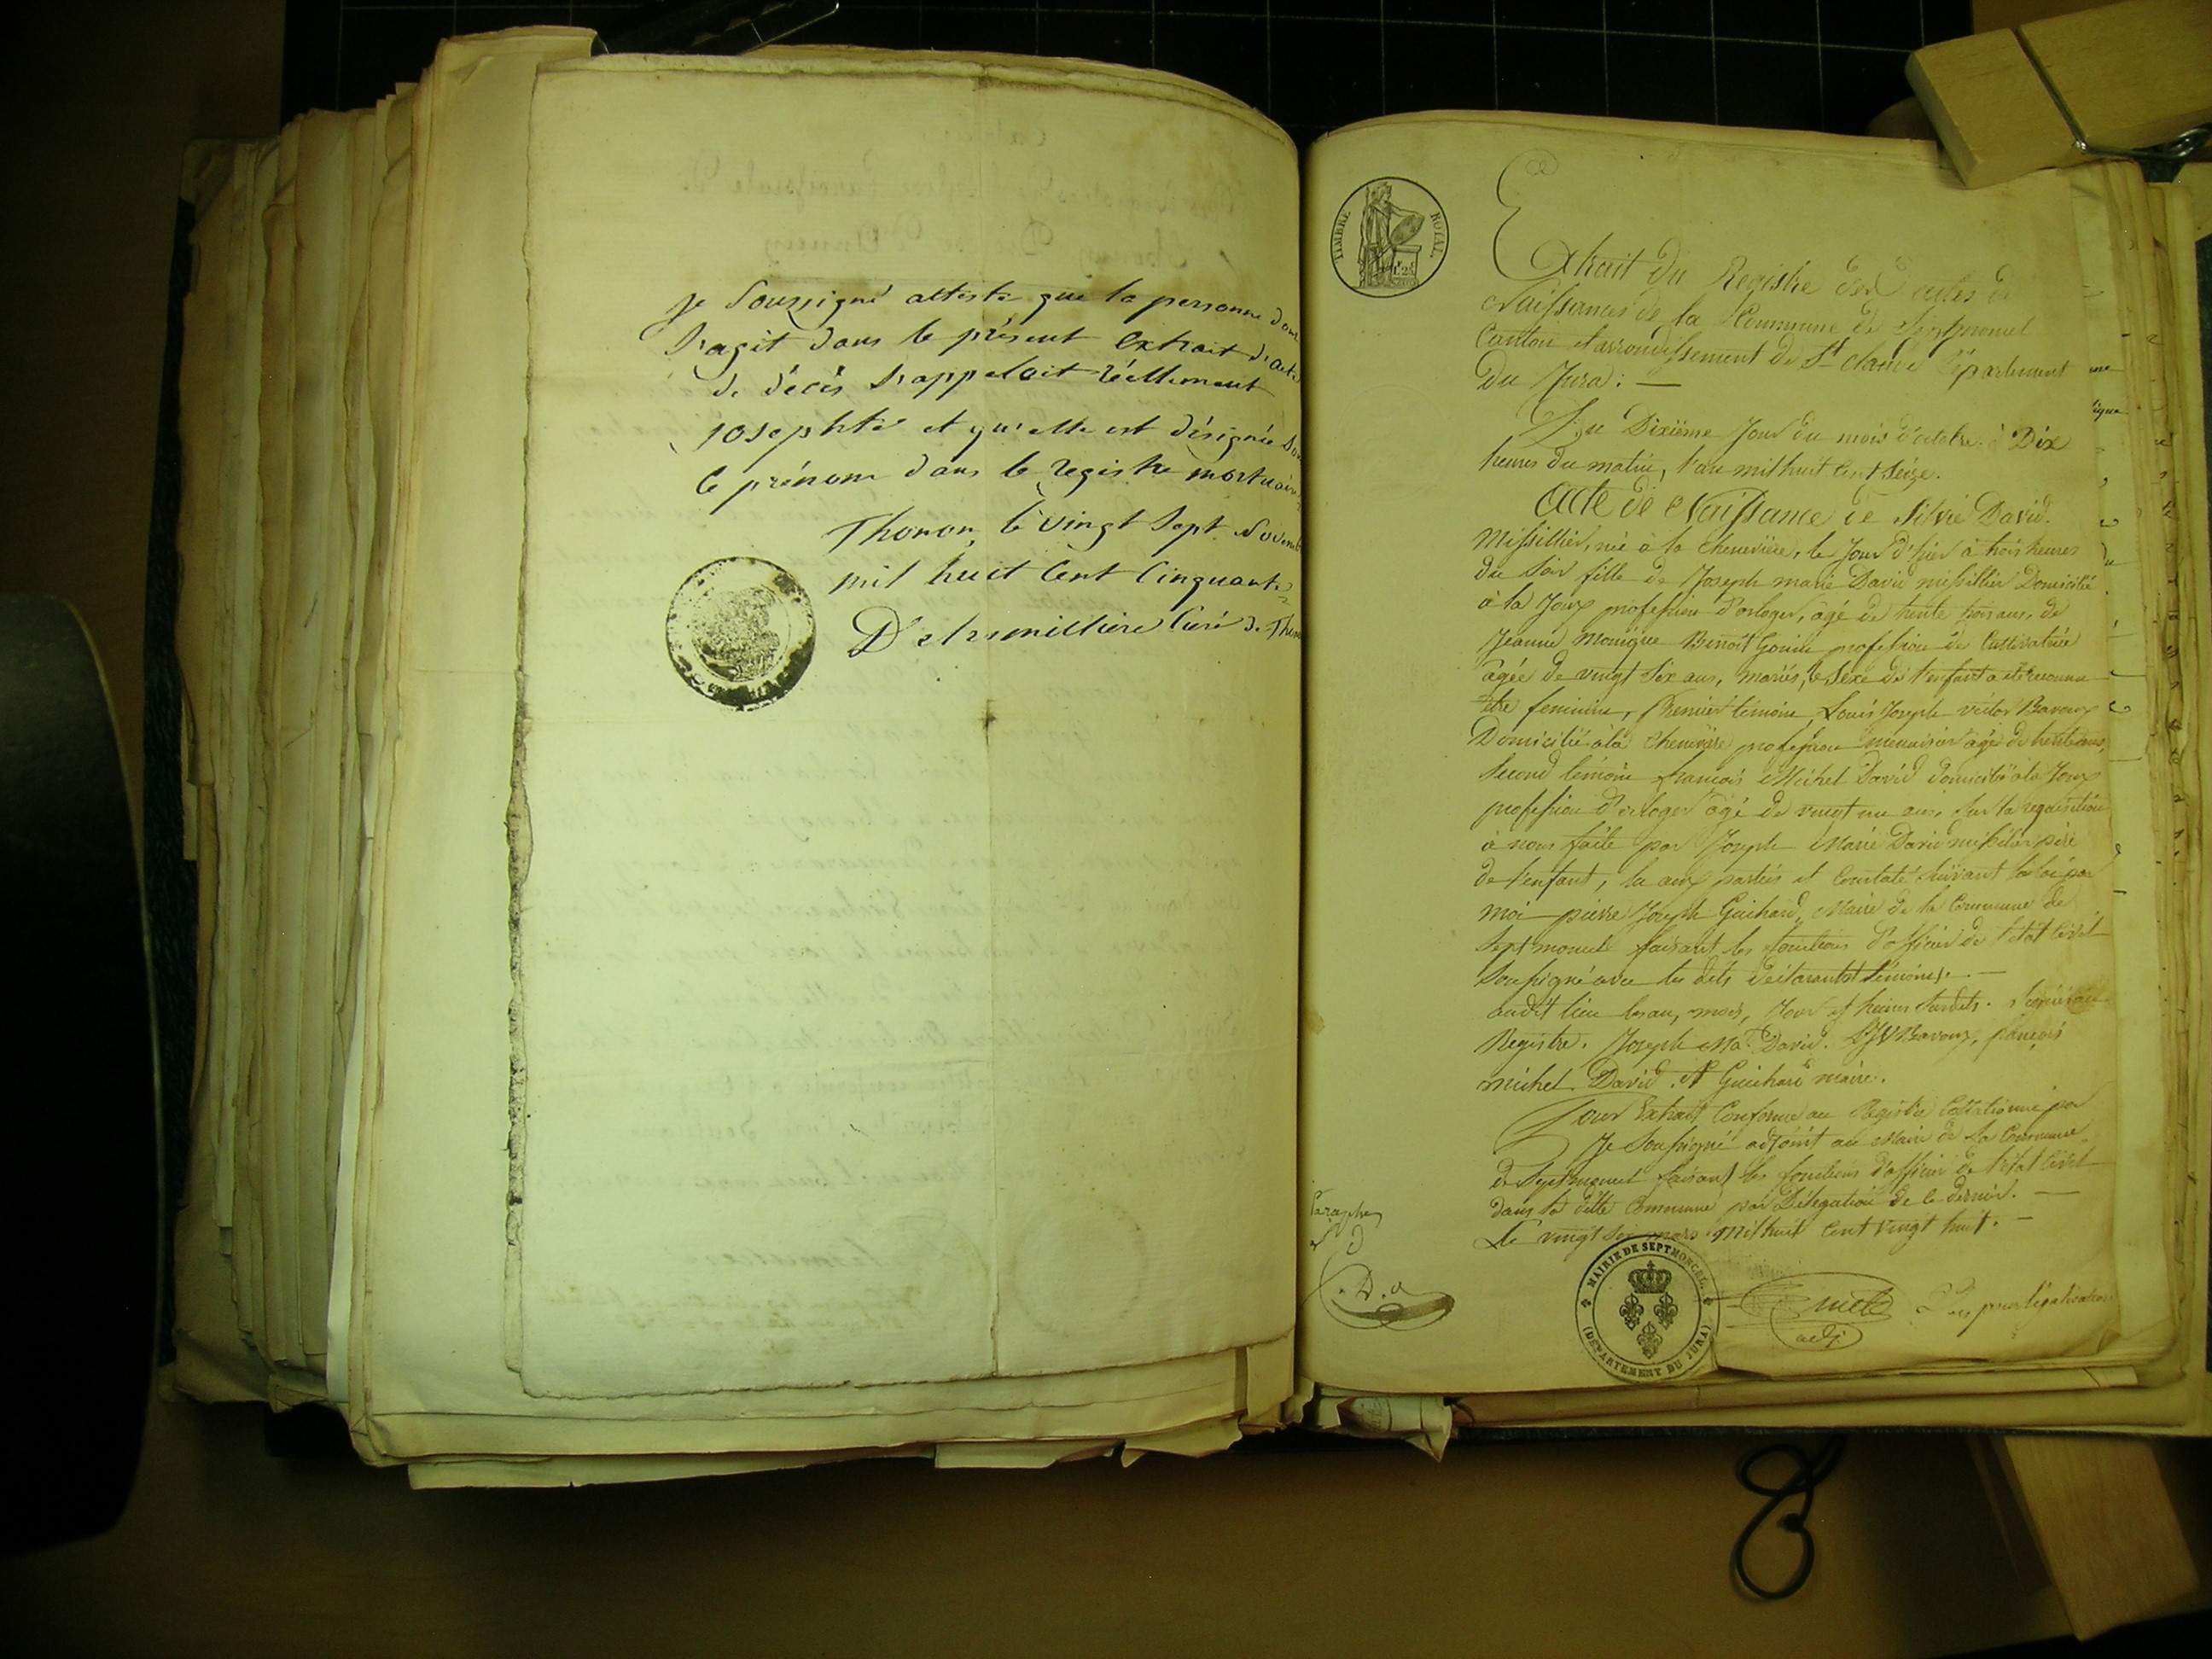 Je soussigné atteste que la personne dont
s'agit dans le présent extrait d'acte
de décès s'appelait réellement
josephte et qu'elle est désignée sous
ce prénom dans le registre mortuaire
Thonon, le vingt sept Novembre
mil huit cent cinquante
Curé de Thonon
TIMBRE ROYAL
Extrait du Registre des actes de
Naissances de la Commune de Septmoncel
Canton et arrondissement de St Claude Département
du Jura : —
Du Dixième jour du mois d'octobre à Dix
heures du matin, l'an mil huit cent seize.
Acte de Naissance de Silvie David
Missillier, née à la chenevière, le jour d'hier à trois heures
du soir fille de Joseph marie David missillier Domicilié
à la Joux profession d'orloger, âgé de trente trois ans, de
Jeanne Monique Benoit Gonin profession de Cultivatrice
âgée de vingt six ans, mariés, le sexe de l'enfant a été reconnu
être feminin, Premier témoin, Louis Joseph victor Bavoux
Domicilié à la chenevière profession menuisier âgé de trente ans,
second témoin françois Michel David domicilié à la Joux
profession d'orloger âgé de vingt un ans, sur la requisition
à nous faite par Joseph Marie David missillier père
de l'enfant, lu aux parties et constaté suivant la loi par
moi pierre Joseph Guichard, Maire de la Commune de
Septmoncel faisant les fonctions d'officier de l'état civil
soussigné avec les dits déclarant et témoins. —
audit lieu les an, mois, jour et heures susdits.
Registre. Joseph Ma David. LJV Bavoux, françois
michel David. et Guichard maire.
Pour Extrait Conforme au Registre Collationné par
Je soussigné adjoint au Maire de la Commune
de Septmoncel faisant les fonctions d'officier de l'état civil
dans la dite Commune par Délégation de ce dernier. —
Le vingt six mars Mil huit cent vingt huit. —
MAIRIE DE SEPTMONCEL (DÉPARTEMENT DU JURA)
adj.
pour légalisation